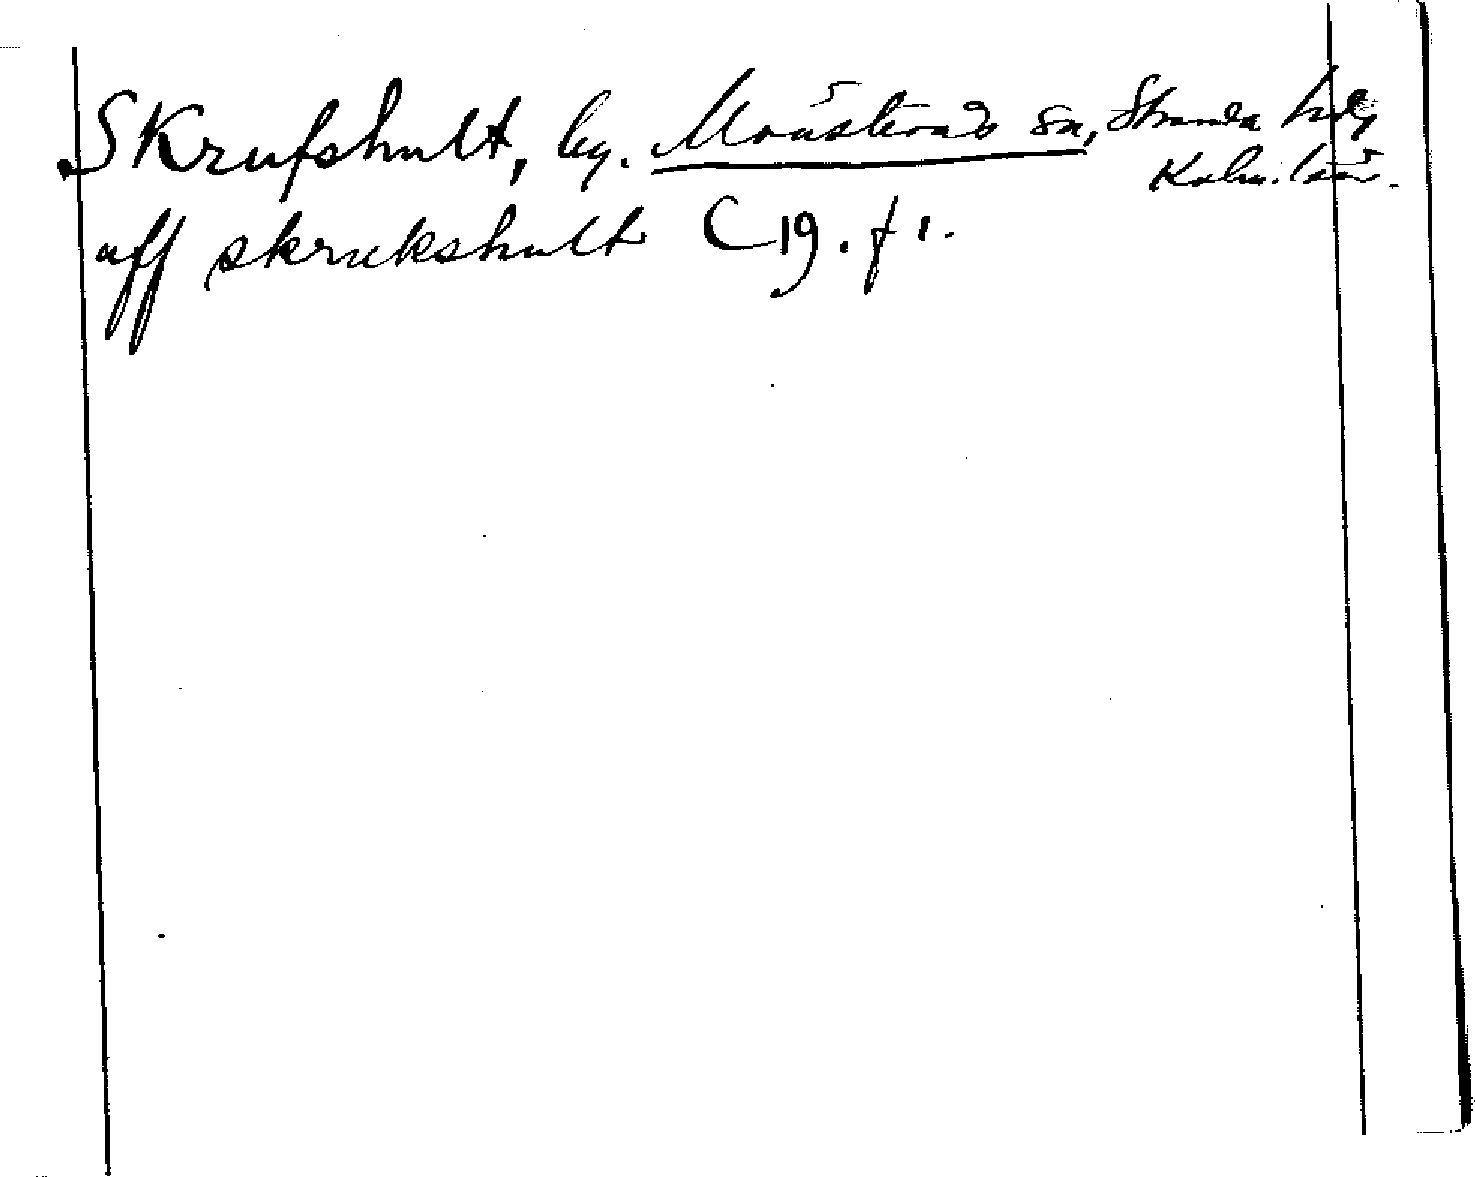 Skrufshult, by. Mönsterås sn, Stranda hdg
Kalm. län.
aff skrukshult C 19. f 1.